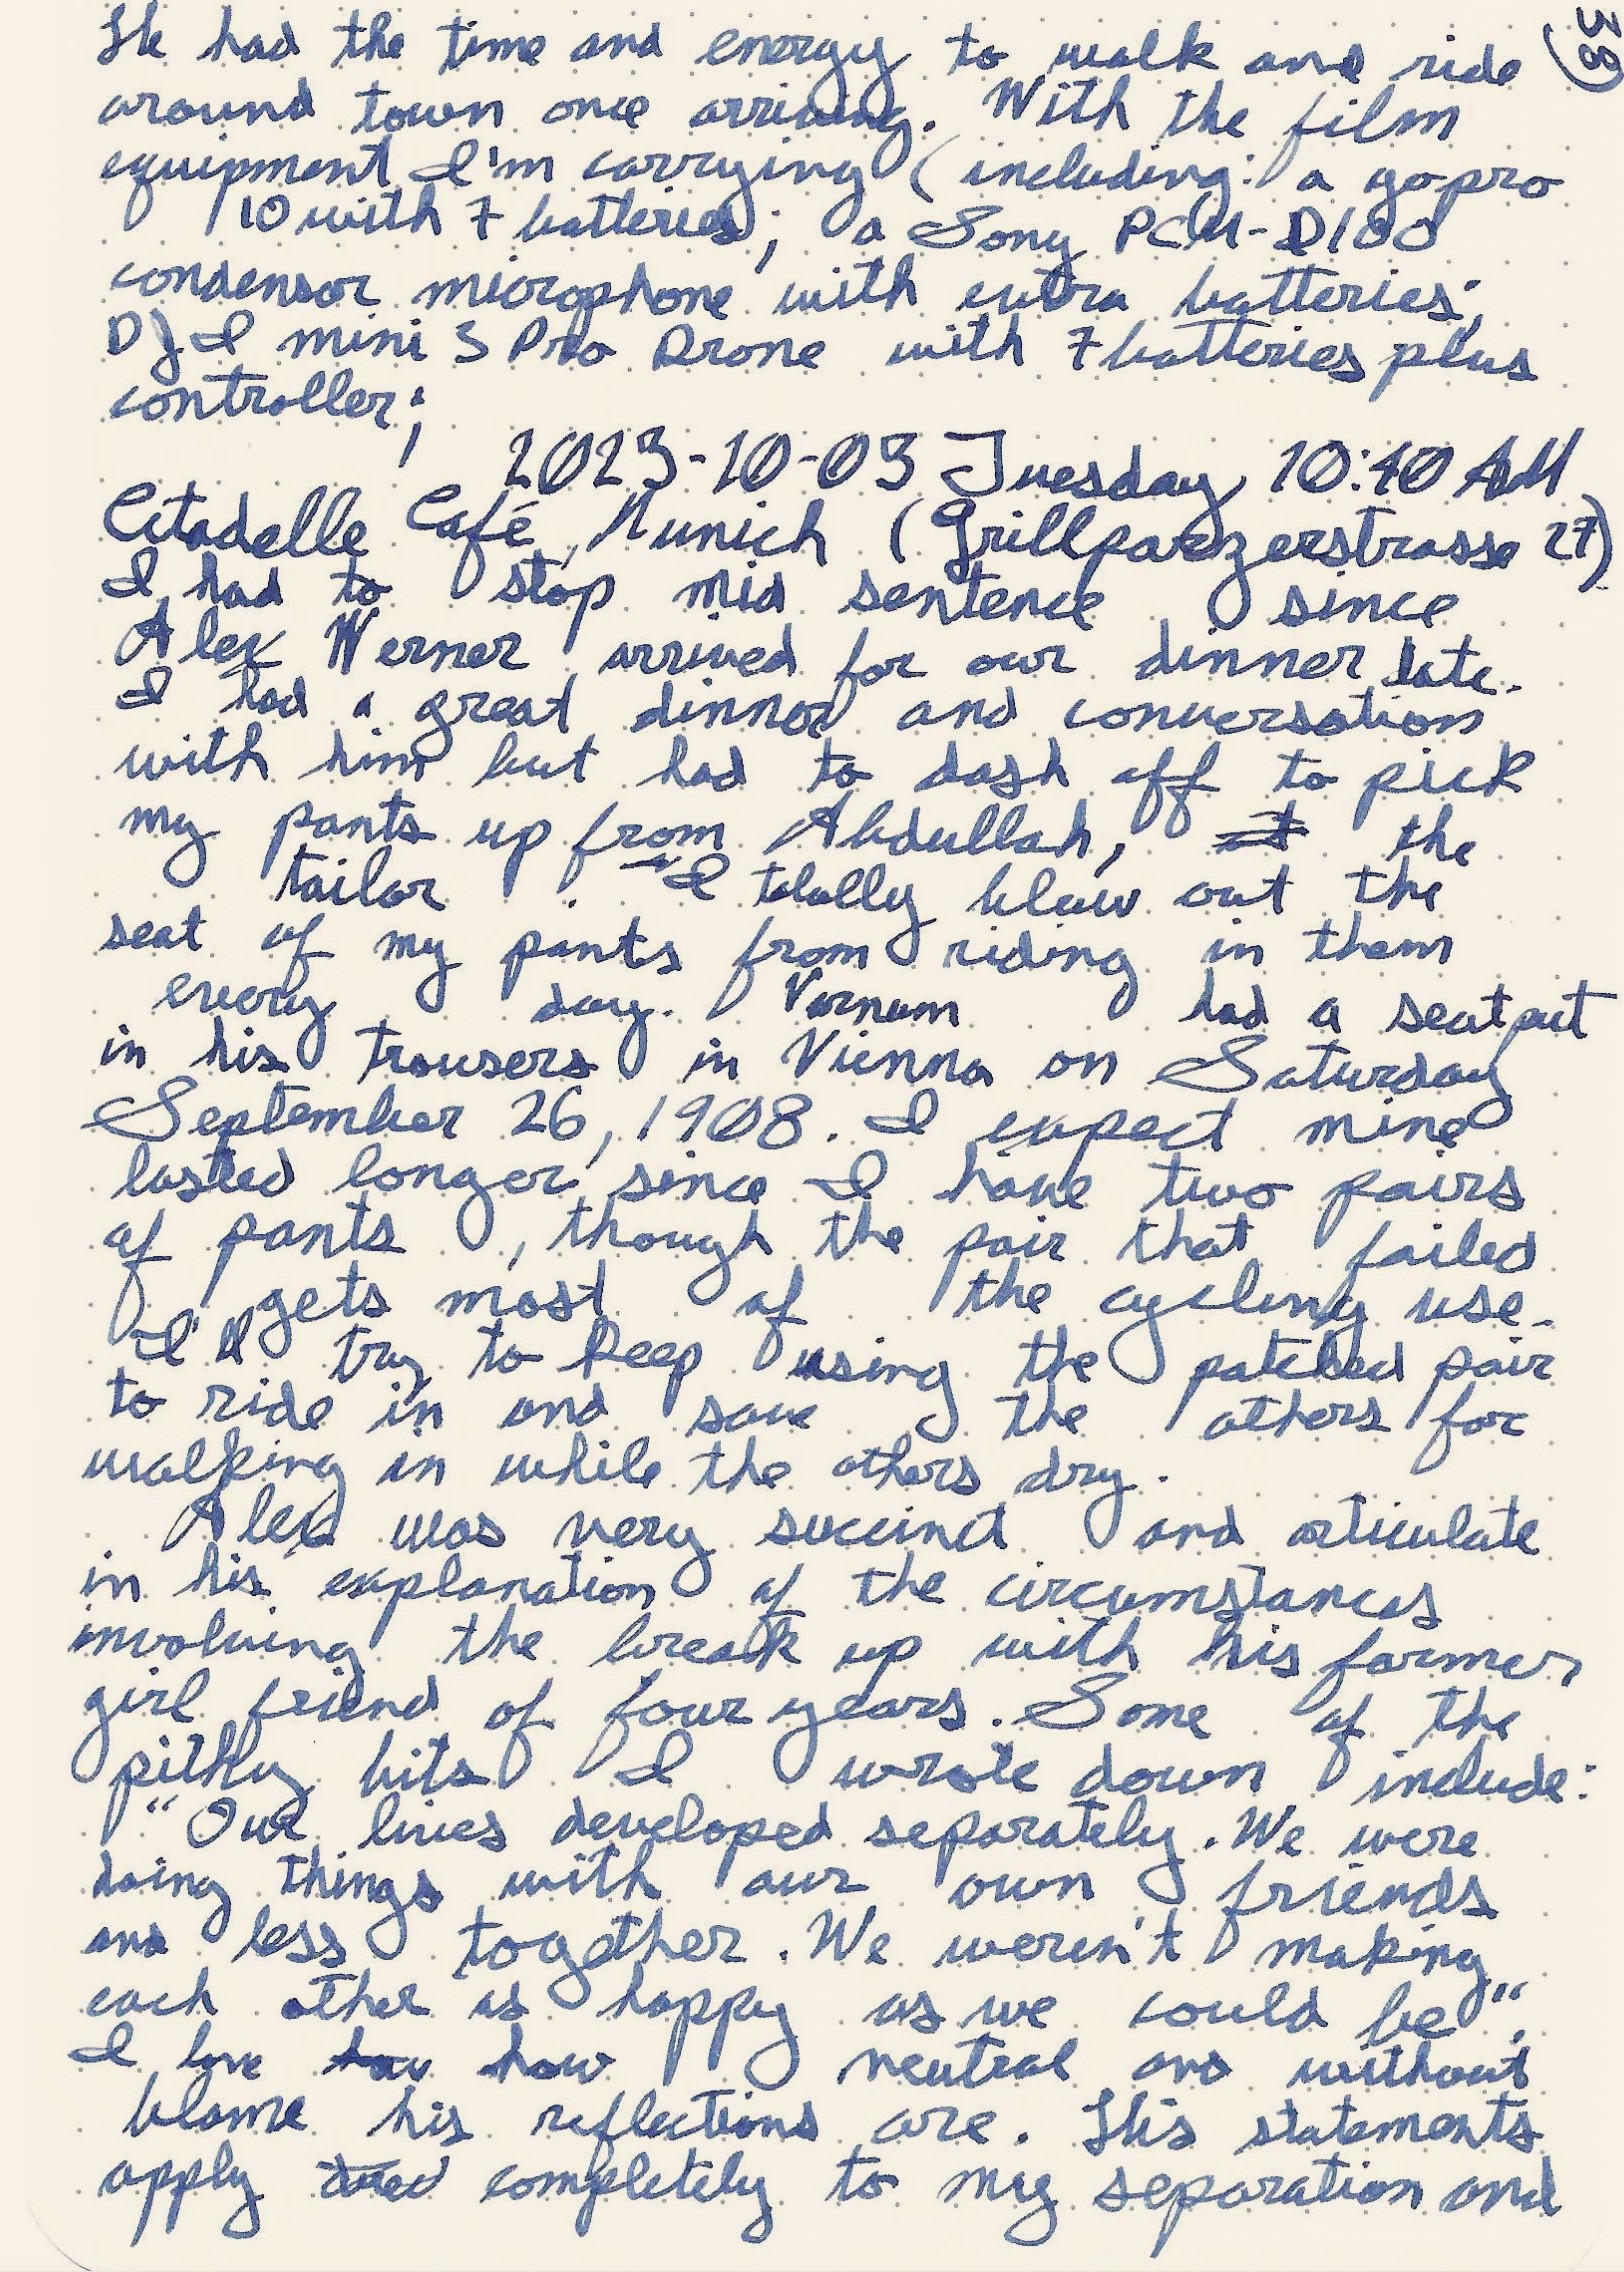 38
He had the time and energy to walk and ride
around town once arriving. With the film
equipment I'm carrying (including: a gopro
10 with 7 batteries; a Sony PCM-D100
condensor microphone with extra batteries;
DJI mini 3 Pro Drone with 7 batteries plus
controller;
2023-10-03 Tuesday 10:40 AM
Citadelle Café, Munich (Grillparzerstrasse 27)
I had to stop mid sentence since
Alex Werner arrived for our dinner date.
I had a great dinner and conversation
with him but had to dash off to pick
my pants up from Abdullah, the
tailor. I totally blew out the
seat of my pants from riding in them
every day. Varnum had a seat put
in his trousers in Vienna on Saturday
September 26, 1908. I expect mine
lasted longer since I have two pairs
of pants, though the pair that failed
gets most of the cycling use.
I'll try to keep using the patched pair
to ride in and save the others for
walking in while the others dry.
Alex was very succinct and articulate
in his explanation of the circumstances
involving the break up with his former
girl friend of four years. Some of the
pithy bits I wrote down include:
"Our lives developed separately. We were
doing things with our own friends
and less together. We weren't making
each other as happy as we could be".
I love how neutral and without
blame his reflections are. His statements
apply completely to my separation and